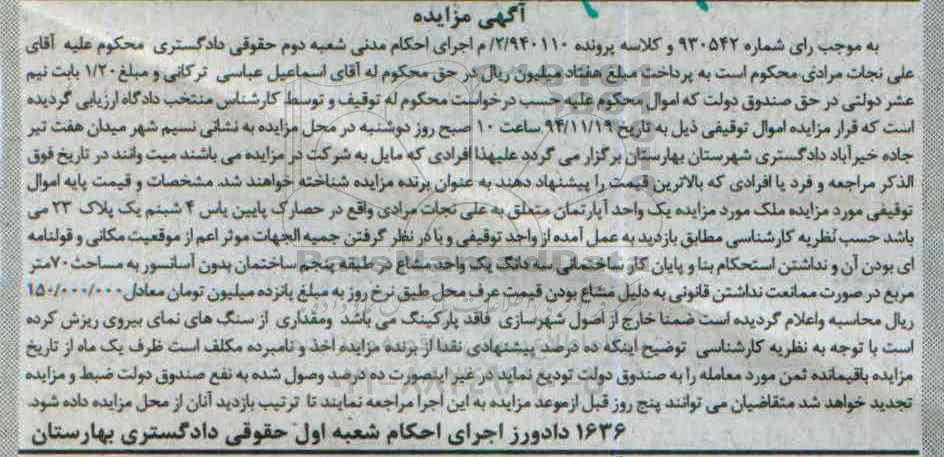 آگهی مزایده
به موجب رای شماره ۹۳۰۵۴۲ و کلاسه پرونده ۲/۹۴۰۱۱۰/ م اجرای احکام مدنی شعبه دوم حقوقی دادگستری محکوم علیه آقای
علی نجات مرادی محکوم است به پرداخت مبلغ هفتاد میلیون ریال در حق محکوم له آقای اسماعیل عباسی ترکانی و مبلغ ۱/۲۰ بابت نیم
عشر دولتی در حق صندوق دولت که اموال محکوم علیه حسب درخواست محکوم له توقیف و توسط کارشناس منتخب دادگاه ارزیابی گردیده
است که قرار مزایده اموال توقیفی ذیل به تاریخ ۹۴/۱۱/۱۹ ساعت ۱۰ صبح روز دوشنبه در محل مزایده به نشانی نسیم شهر میدان هفت تیر
جاده خیرآباد دادگستری شهرستان بهارستان برگزار می گردد علیهذا افرادی که مایل به شرکت در مزایده می باشند میت وانند در تاریخ فوق
الذکر مراجعه و فرد یا افرادی که بالاترین قیمت را پیشنهاد دهند به عنوان برنده مزایده شناخته خواهند شد. مشخصات و قیمت پایه اموال
توقیفی مورد مزایده ملک مورد مزایده یک واحد آپارتمان متعلق به علی نجات مرادی واقع در حصارک پایین یاس ۴ شبنم یک پلاک ۲۳ می
باشد حسب نظریه کارشناسی مطابق بازدید به عمل آمده از واحد توقیفی و با در نظر گرفتن جمیه الجهات موثر اعم از موقعیت مکانی و قولنامه
ای بودن آن و نداشتن استحکام بنا و پایان کار ساختمانی سه دانگ یک واحد مشاع در طبقه پنجم ساختمان بدون آسانسور به مساحت ۷۰متر
مربع در صورت ممانعت نداشتن قانونی به دلیل مشاع بودن قیمت عرف محل طبق نرخ روز به مبلغ پانزده میلیون تومان معادل۱۵۰/۰۰۰/۰۰۰
ریال محاسبه واعلام گردیده است ضمنا خارج از اصول شهرسازی فاقد پارکینگ می باشد ومقداری از سنگ های نمای بیروی ریزش کرده
است با توجه به نظریه کارشناسی توضیح اینکه ده درصد پیشنهادی نقدا از برنده مزایده اخذ و نامبرده مکلف است ظرف یک ماه از تاریخ
مزایده باقیمانده ثمن مورد معامله را به صندوق دولت تودیع نماید در غیر اینصورت ده درصد وصول شده به نفع صندوق دولت ضبط و مزایده
تجدید خواهد شد متقاضیان می توانند پنج روز قبل ازموعد مزایده به این اجرا مراجعه نمایند تا ترتیب بازدید آنان از محل مزایده داده شود.
۱۶۳۶ دادورز اجرای احکام شعبه اول حقوقی دادگستری بهارستان